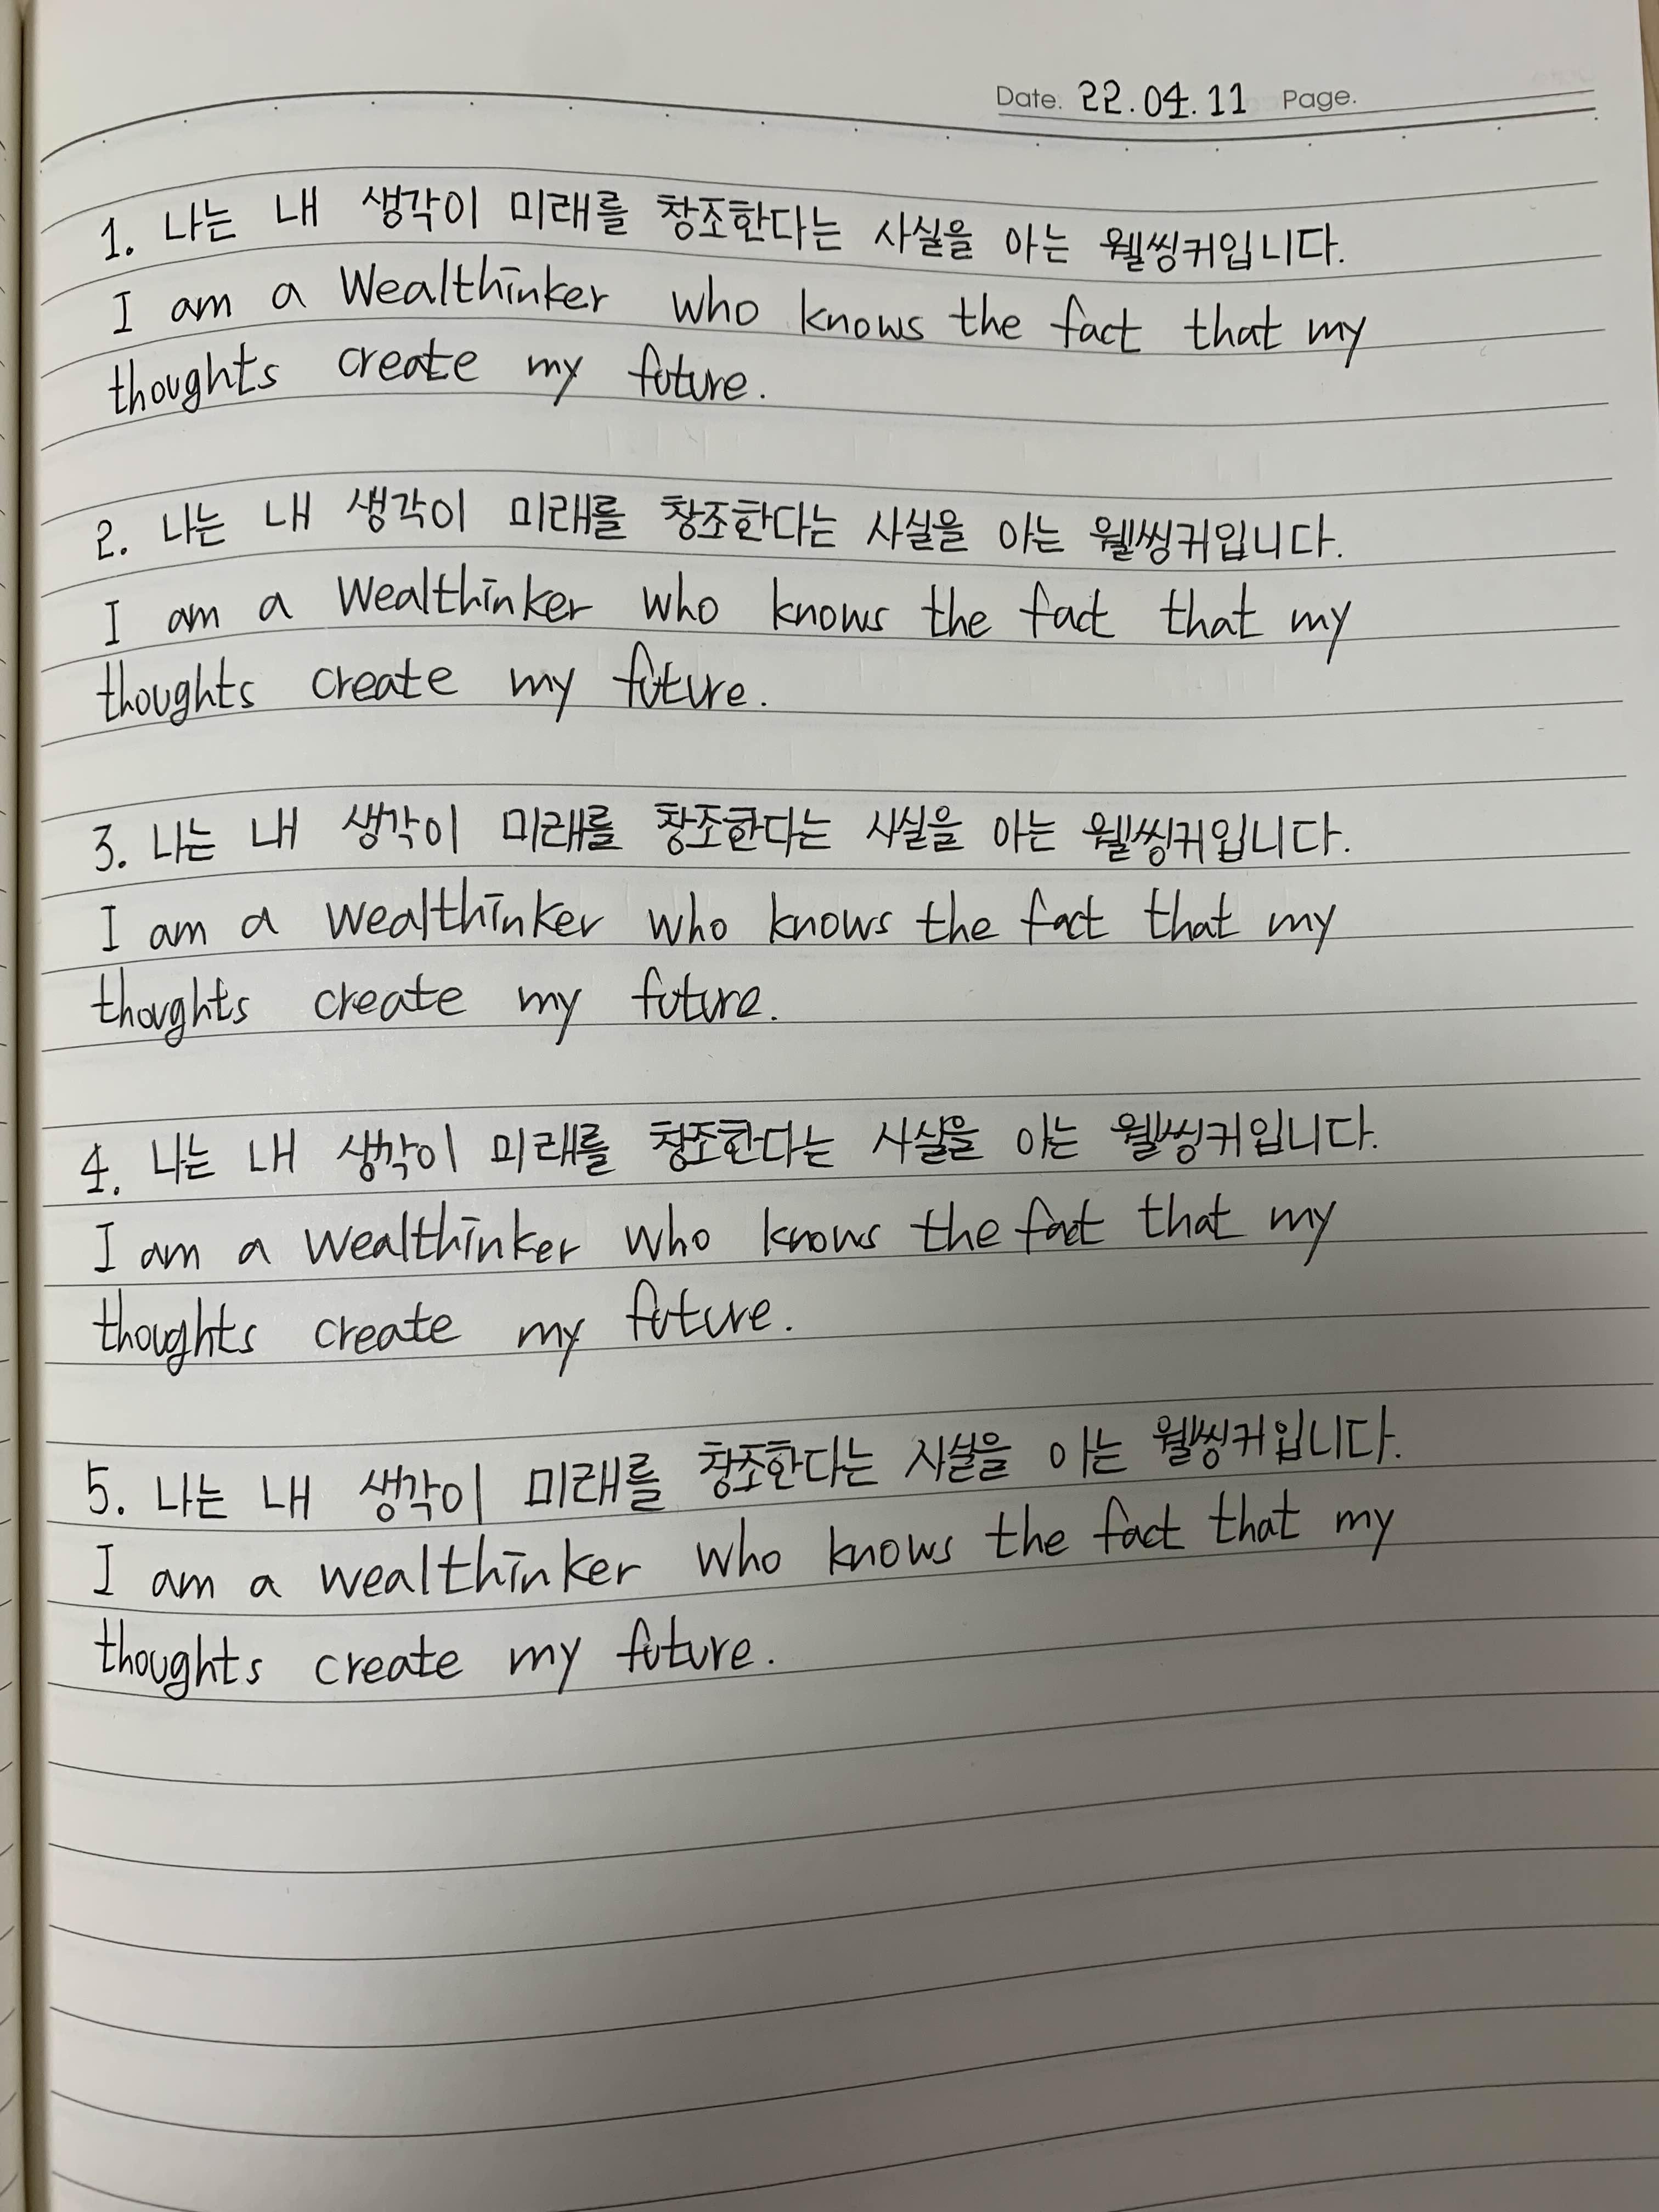 Date. 22.04.11 Page.
1. 나는 내 생각이 미래를 창조한다는 사실을 아는 웰씽커입니다.
I am a Wealthinker who knows the fact that my
thoughts create my future.
2. 나는 내 생각이 미래를 창조한다는 사실을 아는 웰씽커입니다.
I am a Wealthinker who knows the fact that my
thoughts create my future.
3. 나는 내 생각이 미래를 창조한다는 사실을 아는 웰씽커입니다.
I am a Wealthinker who knows the fact that my
thoughts create my future.
4. 나는 내 생각이 미래를 창조한다는 사실을 아는 웰씽커입니다.
I am a wealthinker who knows the fact that my
thoughts create my future.
5. 나는 내 생각이 미래를 창조한다는 사실을 아는 웰씽커입니다.
I am a wealthinker who knows the fact that my
thoughts create my future.